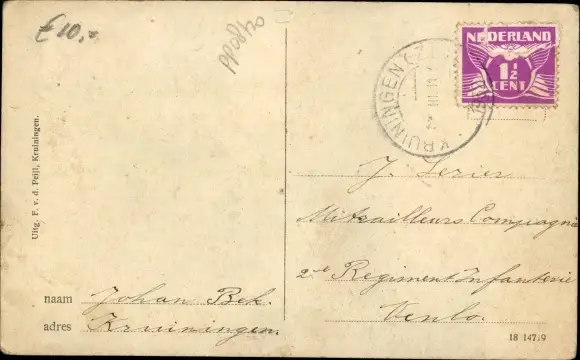 € 10,-
NEDERLAND
1½
CENT
KRUININGEN
Uitg. F. v. d. Peijl, Kruiningen.
J. Serier
Mitrailleurs Compagnie
2e Regiment Infanterie
Venlo.
naam Johan Bek.
adres Kruiningen.
18 147.9